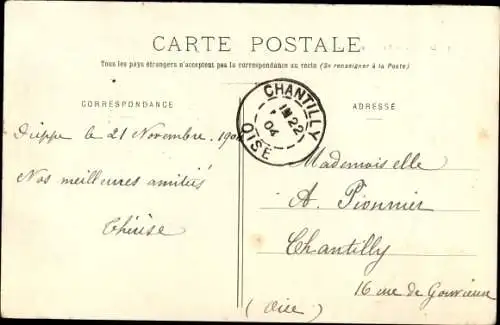 CARTE POSTALE
Tous les pays étrangers n'acceptent pas la correspondance au recto (Se renseigner à la Poste)
CORRESPONDANCE
ADRESSE
CHANTILLY
22
04
OISE
Dieppe le 21 Novembre 190
Nos meilleures amitiés
Thérèse
Mademoiselle
A. Pionnier
Chantilly
16 rue de Gouvieux
(Oise)